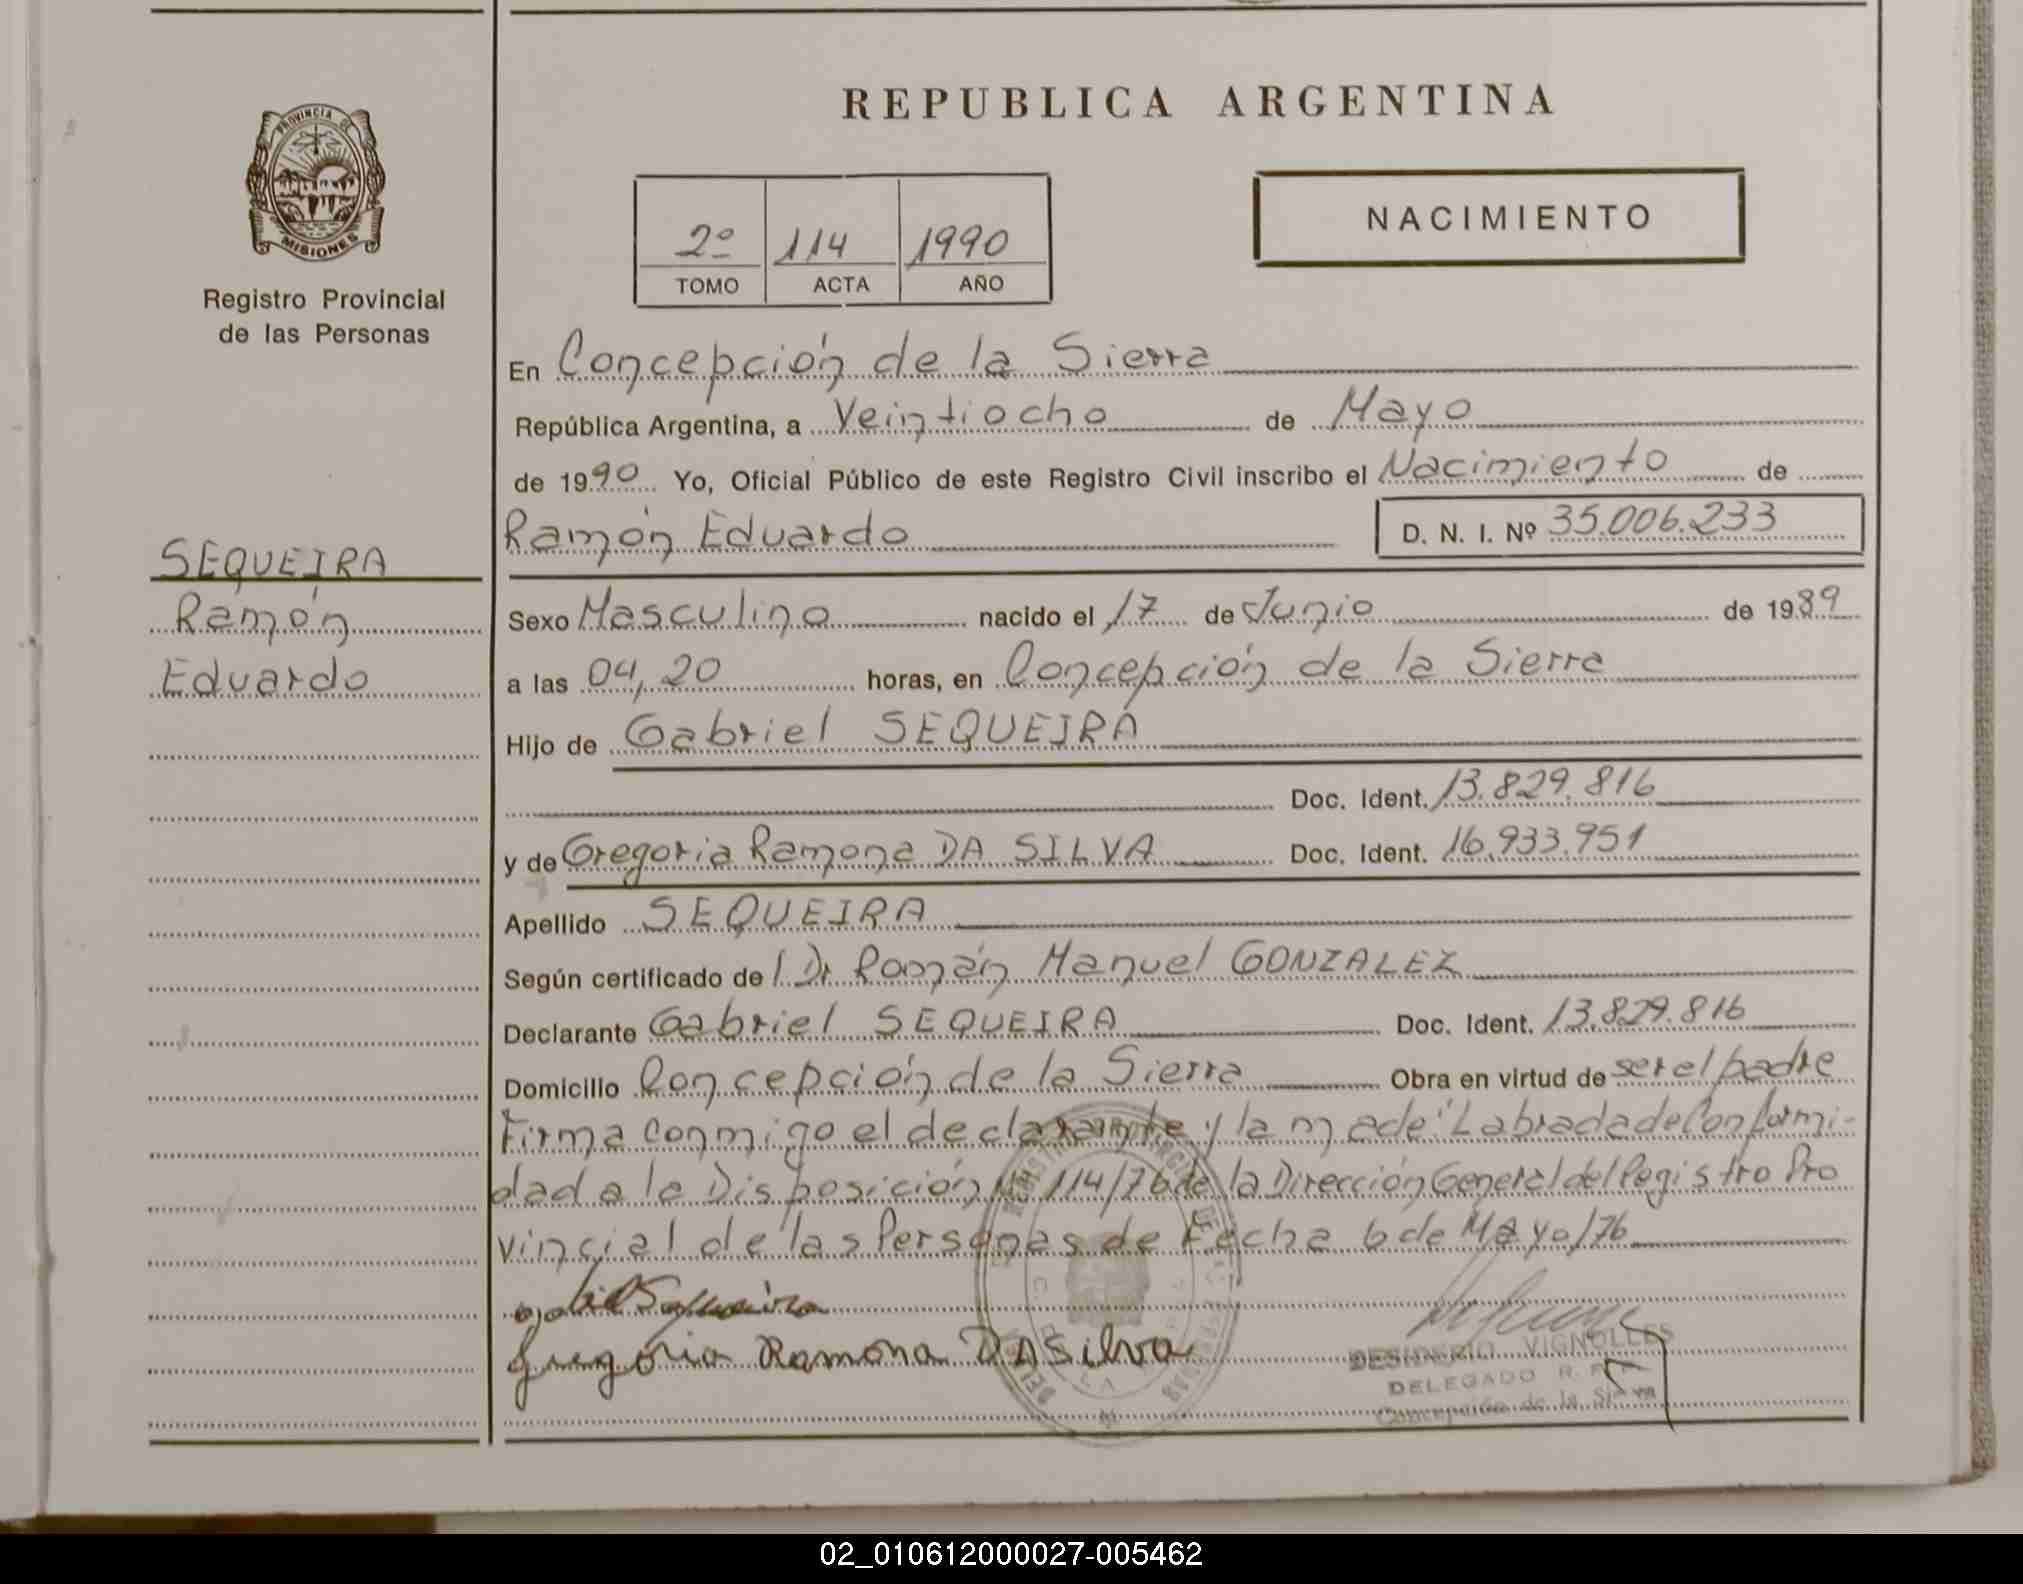 REPUBLICA ARGENTINA
PROVINCIA DE
MISIONES
Registro Provincial
de las Personas
2º 114 1990
TOMO ACTA AÑO
NACIMIENTO
En Concepción de la Sierra
República Argentina, a Veintiocho de Mayo
de 1990 Yo, Oficial Público de este Registro Civil inscribo el Nacimiento de
Ramón Eduardo D. N. I. Nº 35.006.233
SEQUEIRA
Ramón
Eduardo
Sexo Masculino nacido el 17 de Junio de 1989
a las 04,20 horas, en Concepción de la Sierra
Hijo de Gabriel SEQUEIRA
Doc. Ident. 13.829.816
y de Gregoria Ramona DA SILVA Doc. Ident. 16.933.951
Apellido SEQUEIRA
Según certificado de l Dr Román Manuel GONZALEZ
Declarante Gabriel SEQUEIRA Doc. Ident. 13.829.816
Domicilio Concepción de la Sierra Obra en virtud de ser el padre
Firma conmigo el declarante y la made. Labrada de Conformi-
dad a la Disposición 114/76 de la Dirección General del Registro Pro
vincial de las Personas de Fecha 6 de Mayo/76
Gregoria Ramona DA Silva
DESIDERIO VIGNOLLES
DELEGADO R.
Concepción de la Sierra
02_010612000027-005462